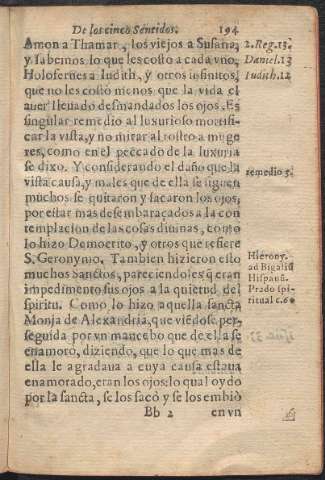 De los cinco Sentidos. 194
Amon a Thamar, los viejos a Susana,
y sabemos lo que les costo a cada vno,
Holofernes a Iudith, y otros infinitos,
que no les costò menos que la vida el
auer lleuado desmandados los ojos. Es
singular remedio al luxurioso mortifi-
car la vista, y no mirar al rostro a muge
res, como en el peccado de la luxuria
se dixo. Y considerando el daño que la
vista causa, y males que de ella se siguen
muchos se quitaron y sacaron los ojos,
por estar mas desembaraçados a la con
templacion de las cosas diuinas, como
lo hizo Democrito, y otros que refiere
S. Geronymo. Tambien hizieron esto
muchos sanctos, pareciendoles q̃ eran
impedimento sus ojos a la quietud del
spiritu. Como lo hizo aquella sancta
Monja de Alexandria, que viẽdose per-
seguida por vn mancebo que de ella se
enamoro, diziendo, que lo que mas de
ella le agradaua a cuya causa estaua
enamorado, eran los ojos: lo qual oydo
por la sancta, se los sacó y se los embiò
Bb 2 en vn
2. Reg. 13.
Daniel. 13
Iudith. 12
remedio 5.
Hierony.
ad Bigaliũ
Hispanũ.
Prado spi-
ritual c. 60